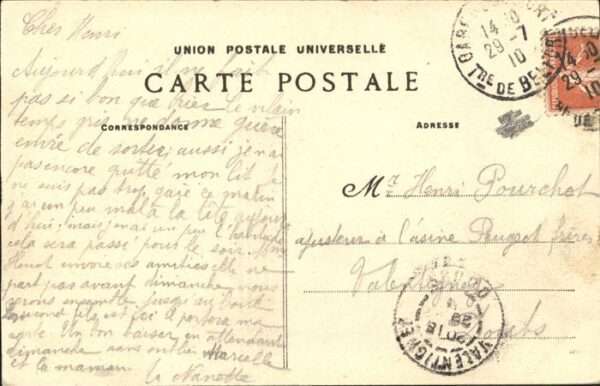 Cher Henri
Aujourd'hui il ne fait
pas si bon que hier le vilain
temps gris ne donne guère
envie de sortir; aussi je n'ai
pas encore quitté mon lit. Je
ne suis pas trop gaie ce matin
j'ai un peu mal à la tête aujour
d'hui; mais un peu l'habitude
cela sera passé pour le soir.
envoie ses amitiés elle ne
part pas avant dimanche, nous
serons ensemble jusqu'au
est ici il portera ma
carte. Un bon baiser en attendant
dimanche sans oublier Marcelle
et la maman.
la Nanette
UNION POSTALE UNIVERSELLE
CARTE POSTALE
CORRESPONDANCE
ADRESSE
Mr Henri Pourchot
ajusteur à l'usine Peugeot frères
Valentigney
Doubs
GARE DE BELFORT
14-10
29-7
10
TRE DE BELFORT
14-10
29
10
VALENTIGNEY
DOUBS